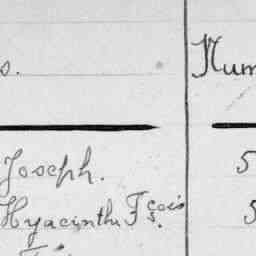 s. Num
Joseph. 5
Hyacinthe Fçois. 5